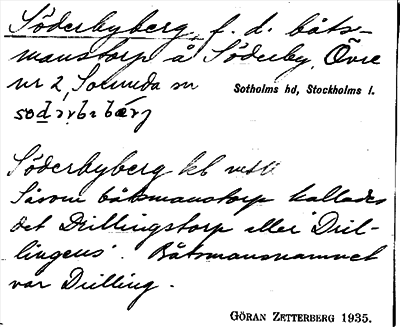 Söderbyberg, f. d. båts-
manstorp å Söderby, Övre
nr 2, Sorunda sn
Sotholms hd, Stockholms l.
Söderbyberg kl
Såsom båtsmanstorp kallades
det Drillingstorp eller "Dril-
lingens". Båtsmansnamnet
var Drilling.
GÖRAN ZETTERBERG 1935.